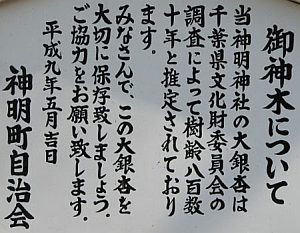 御神木について
当神明神社の大銀杏は
千葉県文化財委員会の
調査によって樹齢八百数
十年と推定されており
ます。
みなさんで、この大銀杏を
大切に保存致しましょう。
ご協力をお願い致します。
平成九年五月吉日
神明町自治会